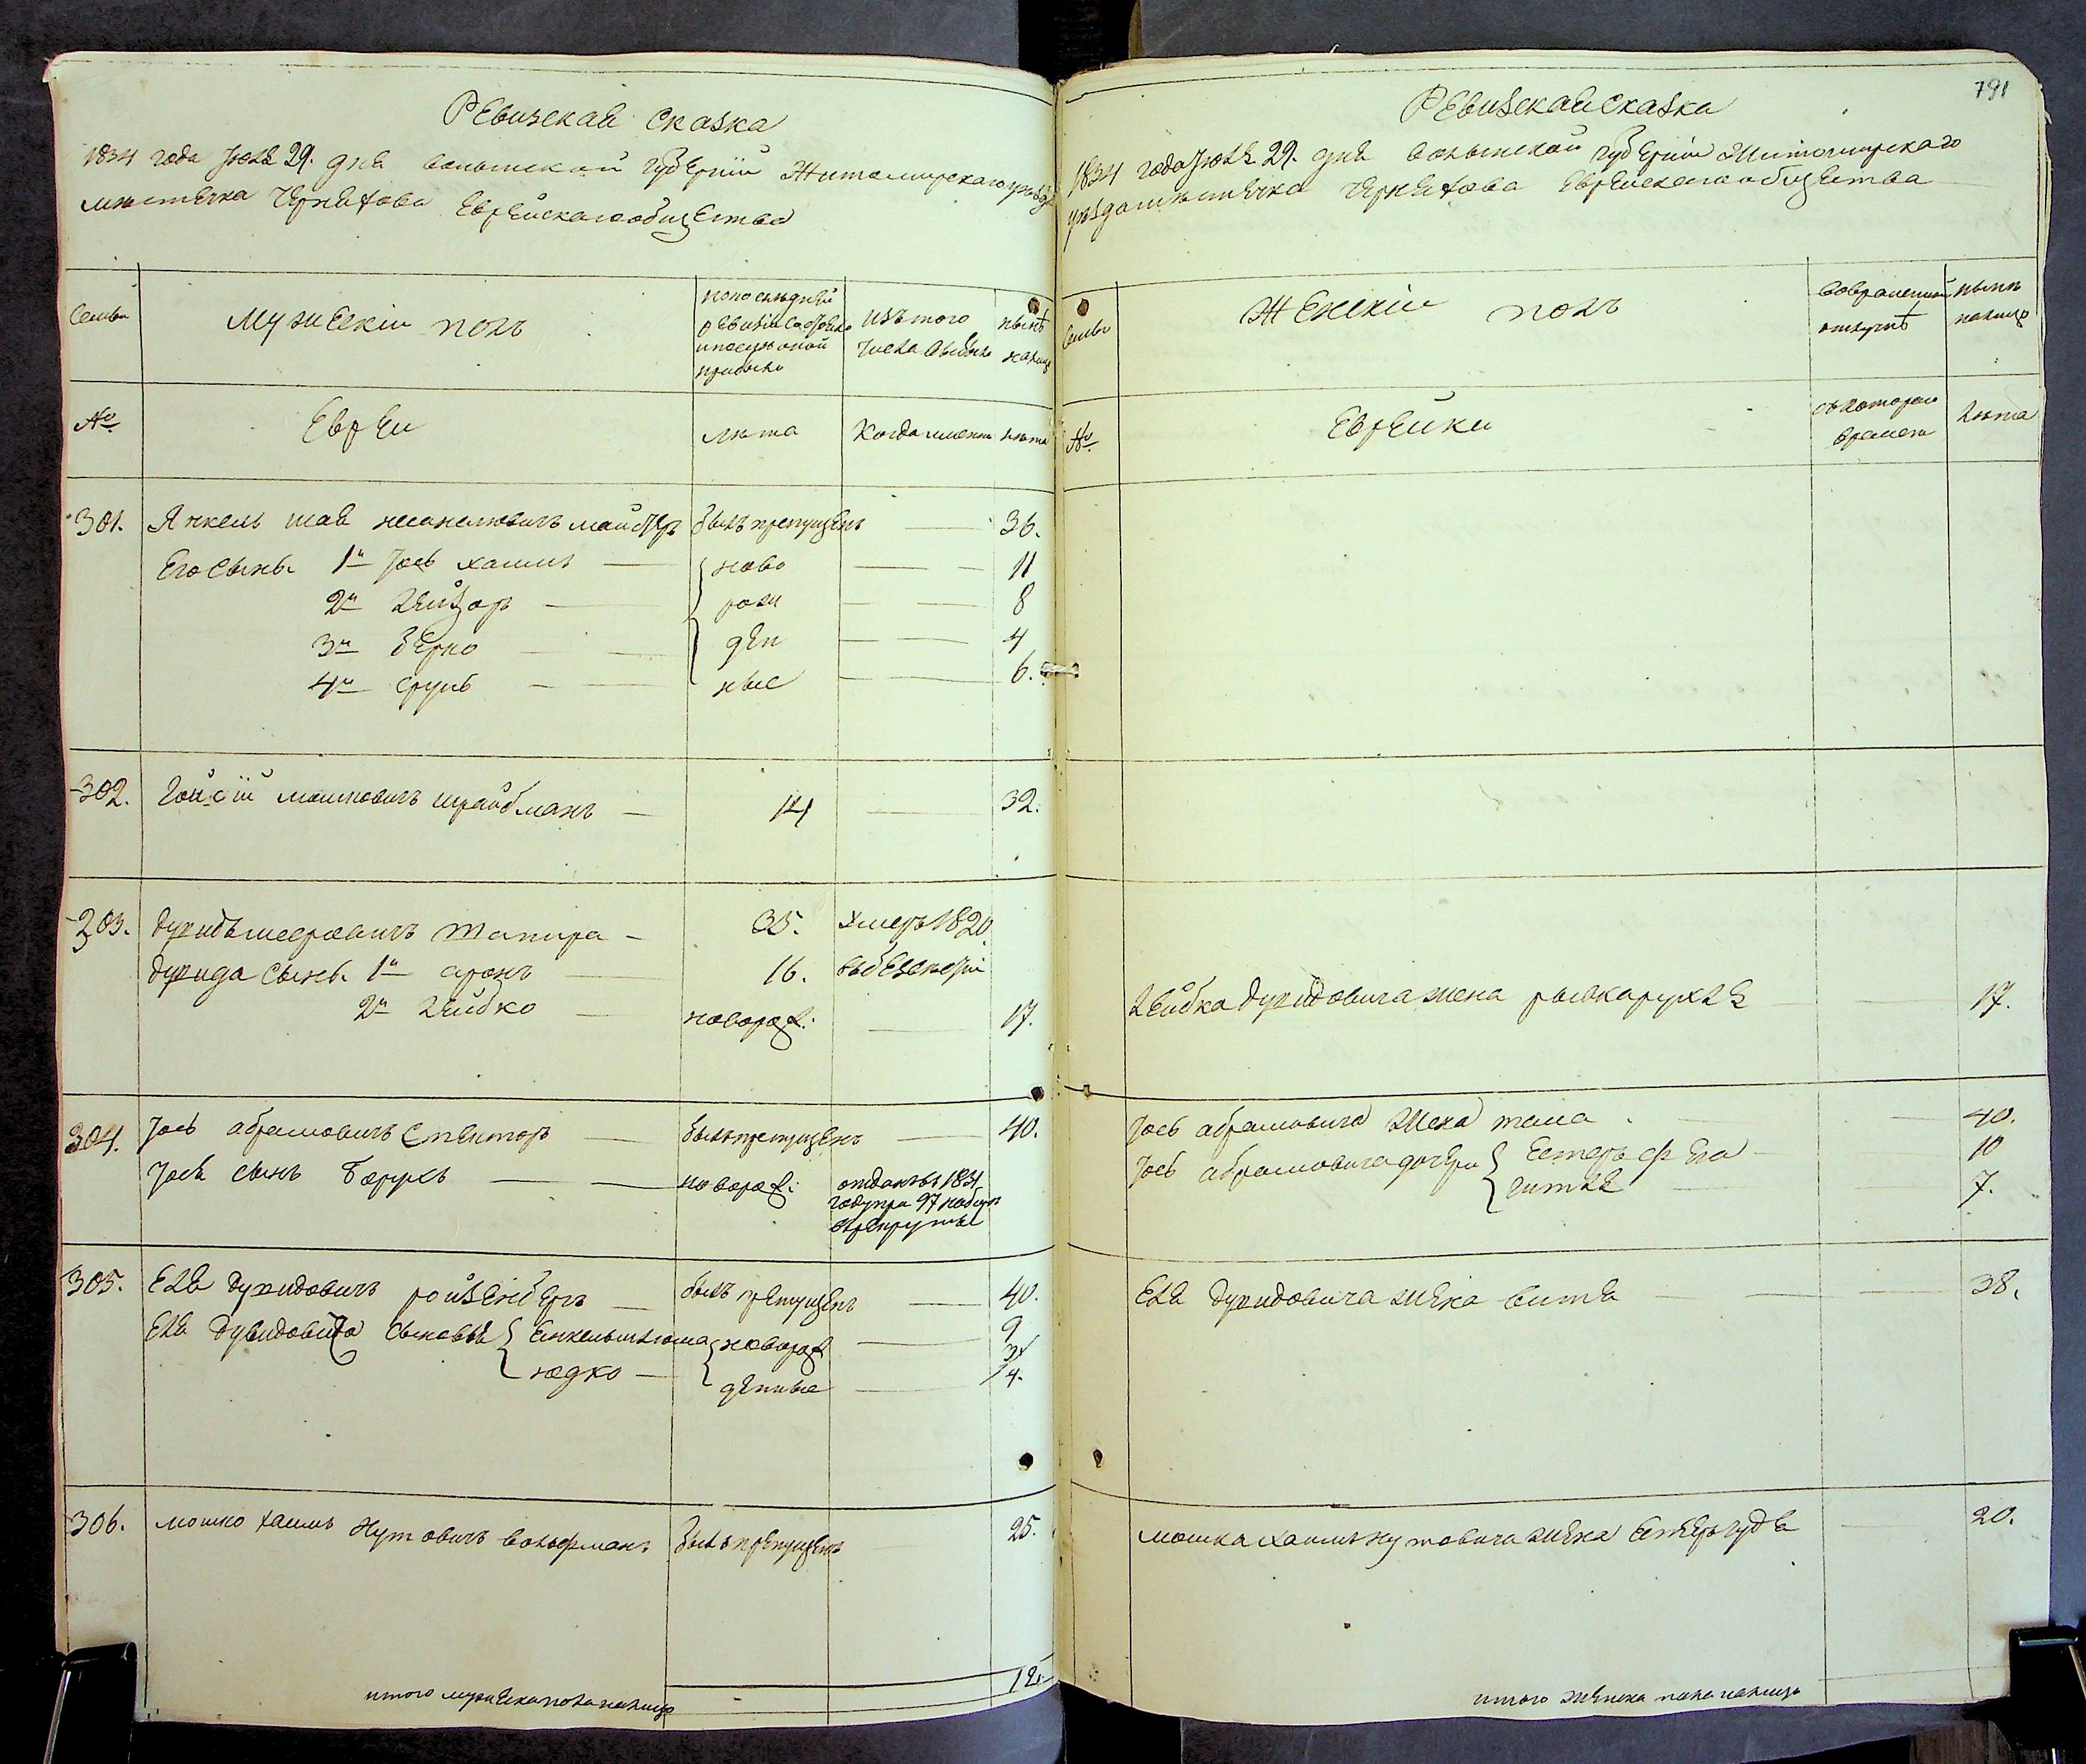 Ревизская Сказка
1834 года Июля 29. дня волынской губернии Житомирского уезда
местечка Черняхова Еврейского общества
Семьи
Мужескій полъ
По последней ревизіи состояло и после оной прибыло
Изъ того числа выбыло
ныне на лицо
№
Евреи
лета
Когда именно
лета
301. Янкель шая майстеръ былъ пропущенъ — 36.
Его сыны 1й Іось хаимъ — ново — 11
2й Лейзоръ — рож — 8
3й Берко — ден — 4
4й Сруль — ные — 6.
302. мошковичъ шрайбманъ — 14 — 32.
303. Дувидъ мееровичъ Шапира — 35. умеръ 1820
Дувида сыны 1й аронъ 16.
2й Лейбко — новорож: — 17.
304. Іось абрамовичъ Спекторъ — былъ пропущенъ — 40.
Іося сынъ Барухъ — новорож: отданъ въ 1831
году при 97 наборе
в рекруты
305. Еля Дувидовичъ ройзенберъ — былъ пропущенъ — 40.
Еля Дувидовича сыновья { Янкель шлиома новорож — 9
юдко — денные — 4.
306. мошко хаимъ Нутовичъ вольфманъ былъ пропущенъ 25.
итого мужеска пола налицо 12.
791
Ревизская Сказка
1834 года Июля 29. дня волынской губернии Житомирскаго
уезда местечка Черняхова Еврейскаго общества
Семьи
Женскій полъ
Во временной отлучке
ныне налицо
№
Еврейки
съ котораго времени
лета
Лейбка Дувидовича жена рывка рухля — 17.
Іось абрамовича жена — 40.
Іось абрамовича дочери { Естеръ фейга — 10
гитля — 7.
Еля Дувидовича жена витя — 38.
мошка хаимъ нутовича жена Естеръ гудя — 20.
итого женска пола налицо